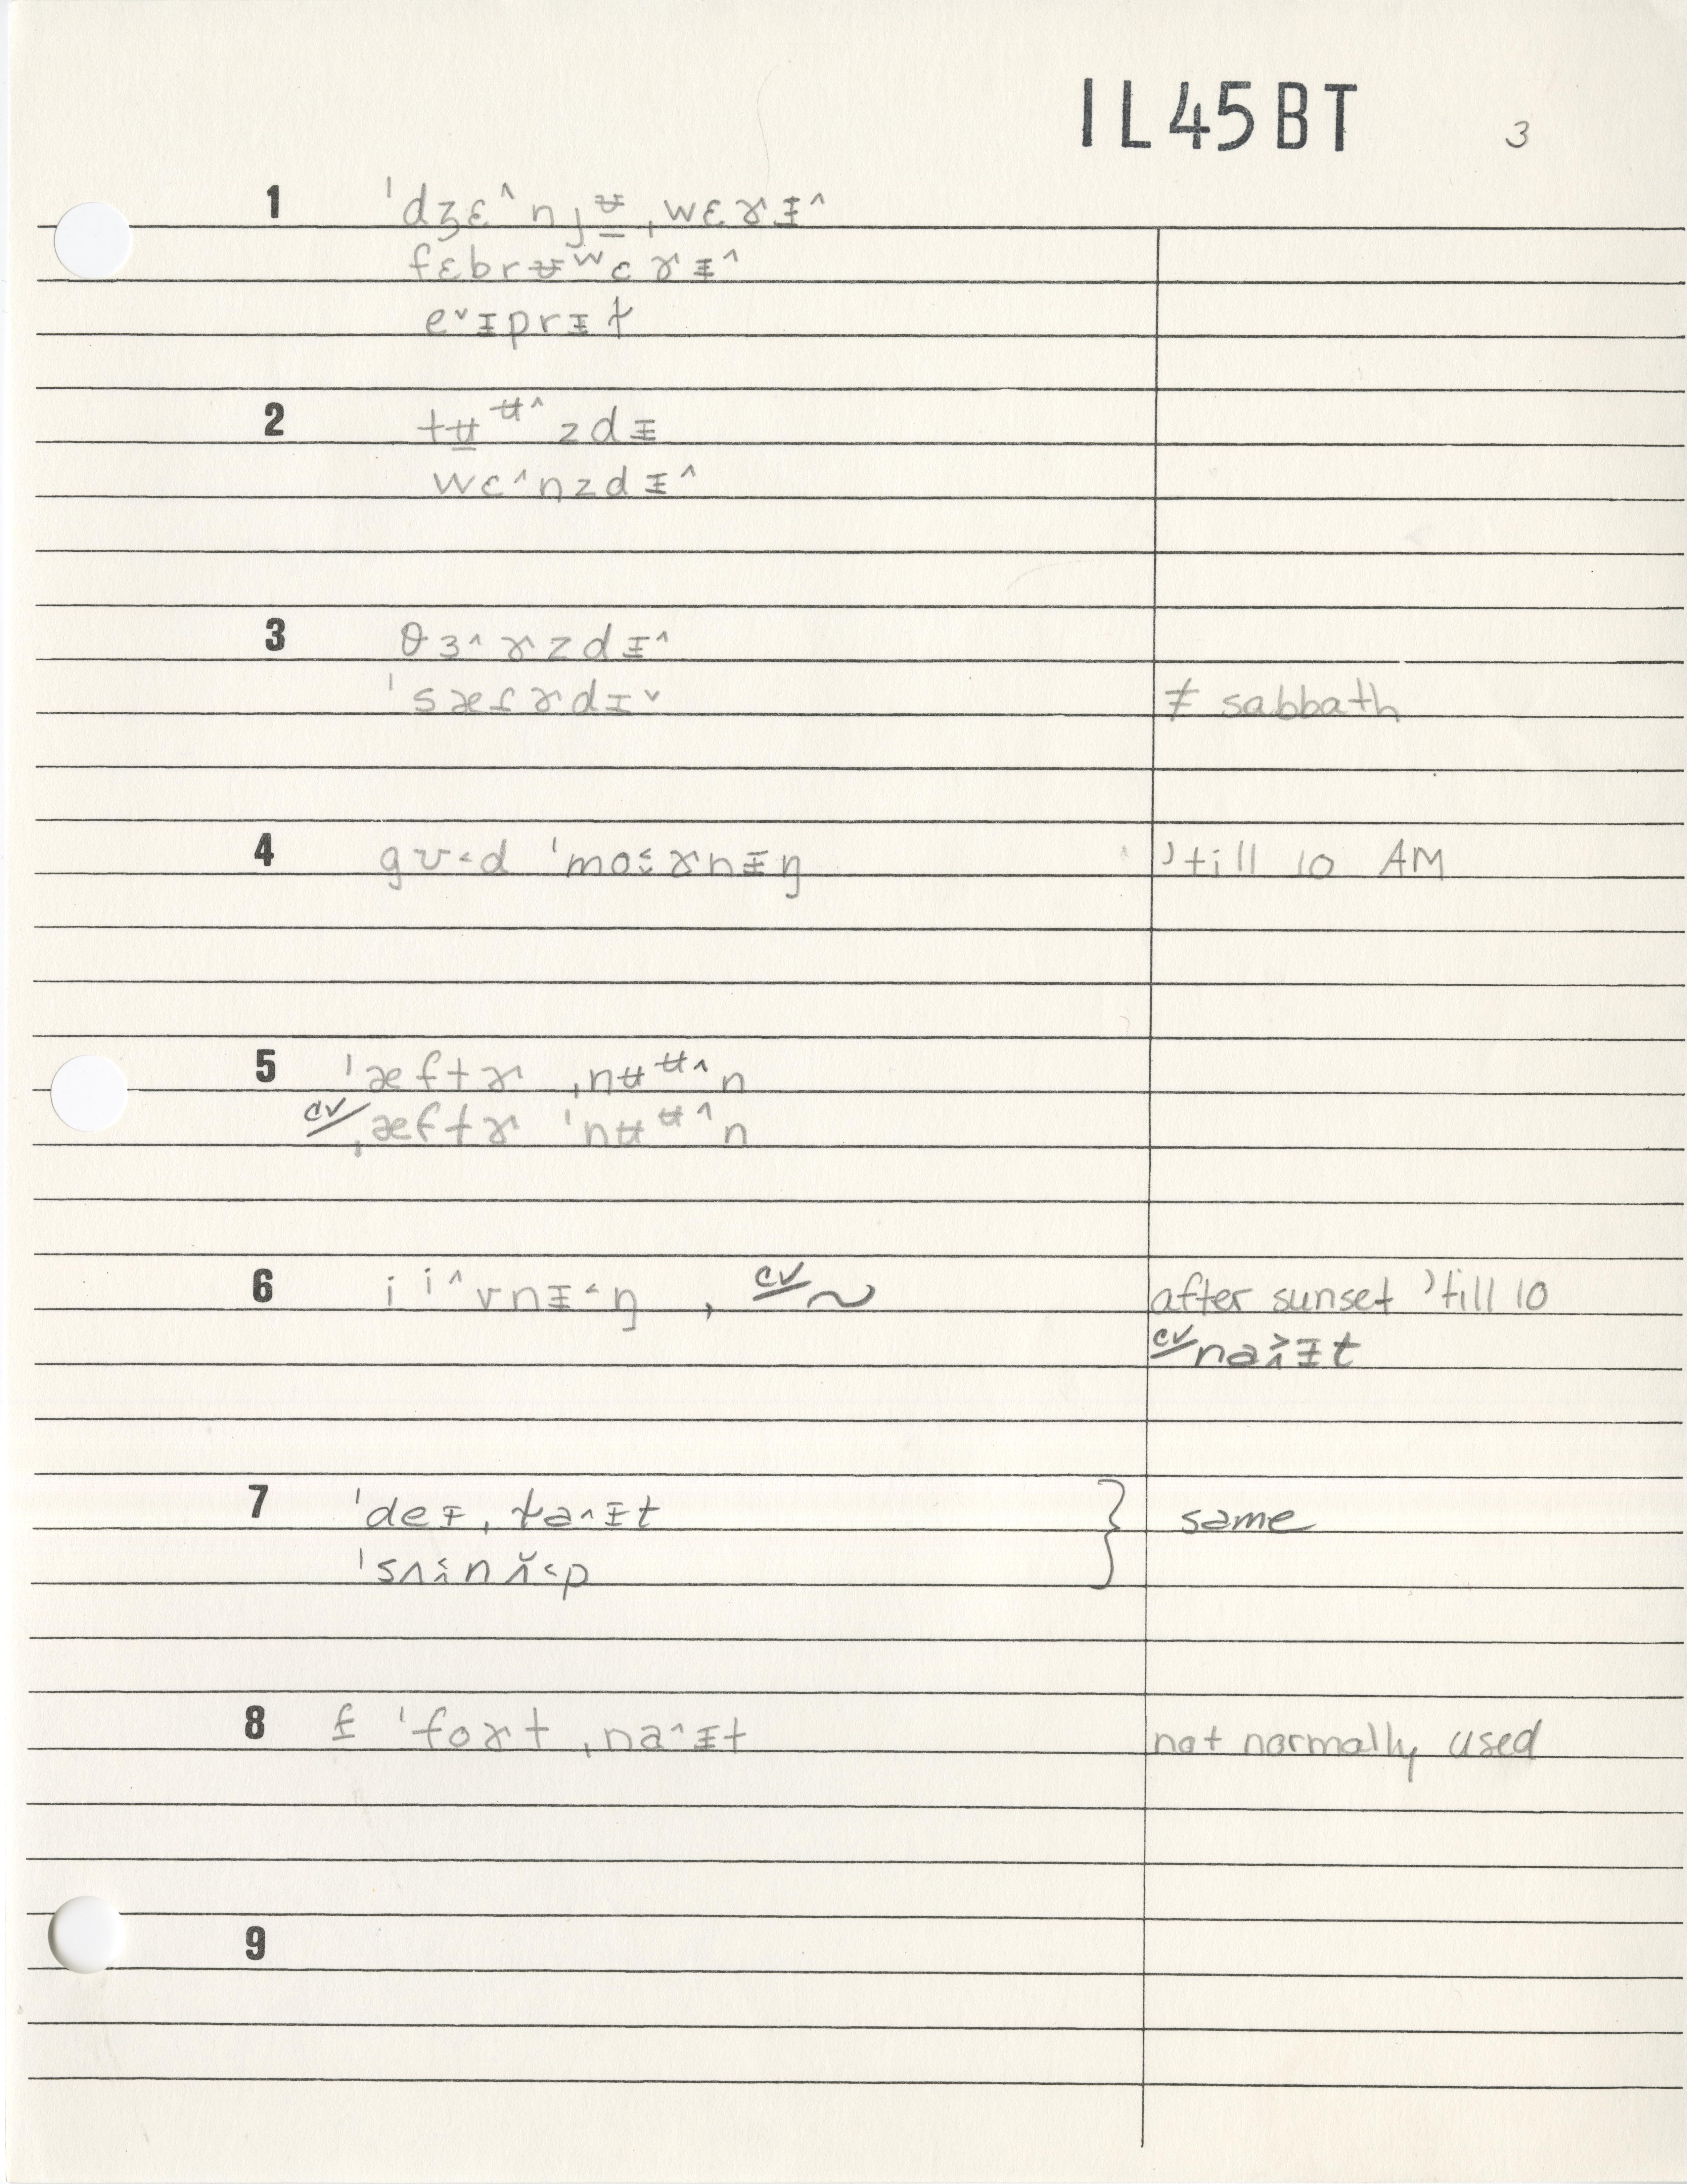 IL45BT 3
1 ˈdʒɛ˄njʉ̱ˌwɛɚᵻ˄
fɛbrʉʷɛɚᵻ˄
e˅ᵻprᵻɫ
2 tʉ̱ᵿ˄zdᵻ
wɛ˄nzdᵻ˄
3 θɜ˄ɚzdᵻ˄
ˈsæfɚdɪ˅ ≠ sabbath
4 gʊ˂d ˈmoɚnᵻŋ 'till 10 AM
5 ˈæftɚ ˌnʉᵿ˄n
cv ˌæftɚ ˈnʉᵿ˄n
6 iⁱ˄vnᵻ˂ŋ , cv ~ after sunset 'till 10
cv naᵻt
7 ˈdeᵻˌɫa˄ᵻt } same
ˈsʌnʌ˂p
8 £ ˈfoɚt ˌna˄ᵻt not normally used
9